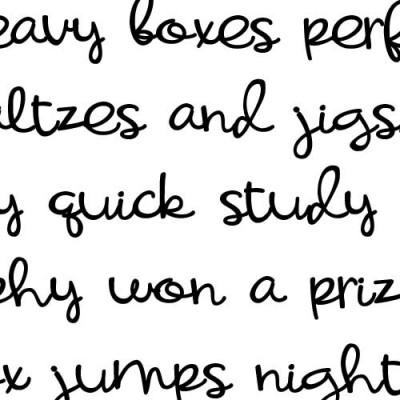 eavy boxes perf
altzes and jigs
y quick study
phy won a priz
ox jumps night